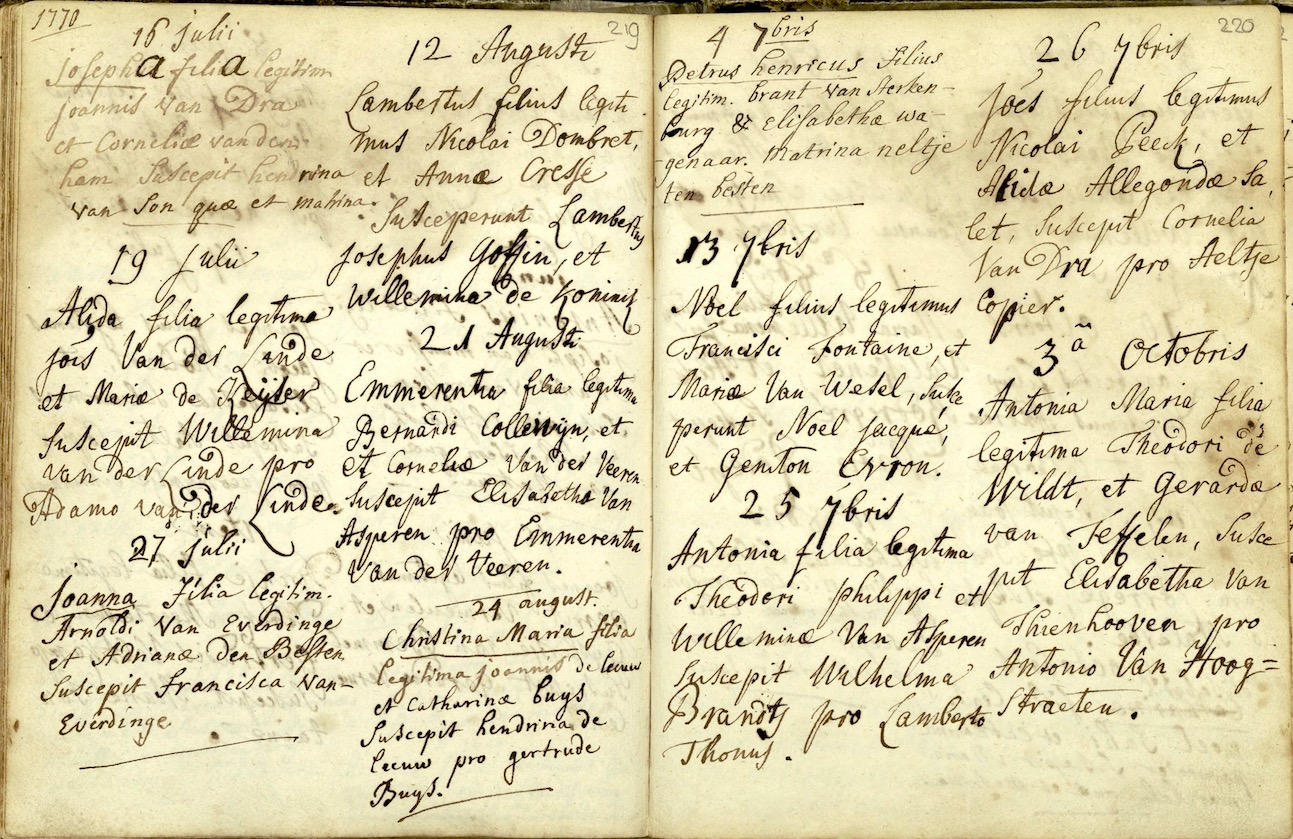 1770
219
16 Julii
Josepha filia legitim
Joannis Van Dra
et Corneliæ vanden
ham Suscepit hendrina
van Son quæ et matrina.
19 Julii
Alida filia legitima
jois Van der Linde
et Mariæ de Keyser
suscepit Willemina
van der Linde pro
Adamo van der Linde
27 Julii
Joanna Filia legitim.
Arnoldi Van Everdinge
et Adrianæ Den Besten
Suscepit francisca Van-
Everdinge
12 Augusti
Lambertus filius legiti
mus Nicolai Dombret,
et Annæ Cresse
Susceperunt Lambertus
Josephus Goffin, et
Willemina de Koninck
21 Augusti
Emmerentia filia legitima
Bernardi Collewijn, et
et Corneliæ Van der Veeren
suscepit Elisabetha Van
Asperen pro Emmerentia
Van der Veeren.
24 august.
Christina Maria filia
legitima joannis de leeuw
et Catharinæ buys
Suscepit hendrina de
leeuw pro gertrude
Buys.
220
4 7bris
Petrus henricus Filius
legitim. brant van Sterken-
burg & elisabethæ wa-
genaar. matrina neltje
ten besten
13 7bris
Noel filius legitimus
Francisci Fontaine, et
Mariæ Van Wesel, susce
perunt Noel jacque,
et Geniton Evrou.
25 7bris
Antonia filia legitima
Theodori philippi et
Willeminæ Van Asperen
Suscepit Wilhelma
Brandts pro Lamberto
Thonus.
26 7bris
Joës filius legitimus
Nicolai Peeck, et
Alidæ Allegondæ Sa,
let, suscepit Cornelia
Van Dra pro Aeltje
Copier.
3ã Octobris
Antonia Maria filia
legitima Theodori de
Wildt, et Gerardæ
van Teffelen, Susce
pit Elisabetha Van
Thienhooven pro
Antonio Van Hoog=
Straeten.